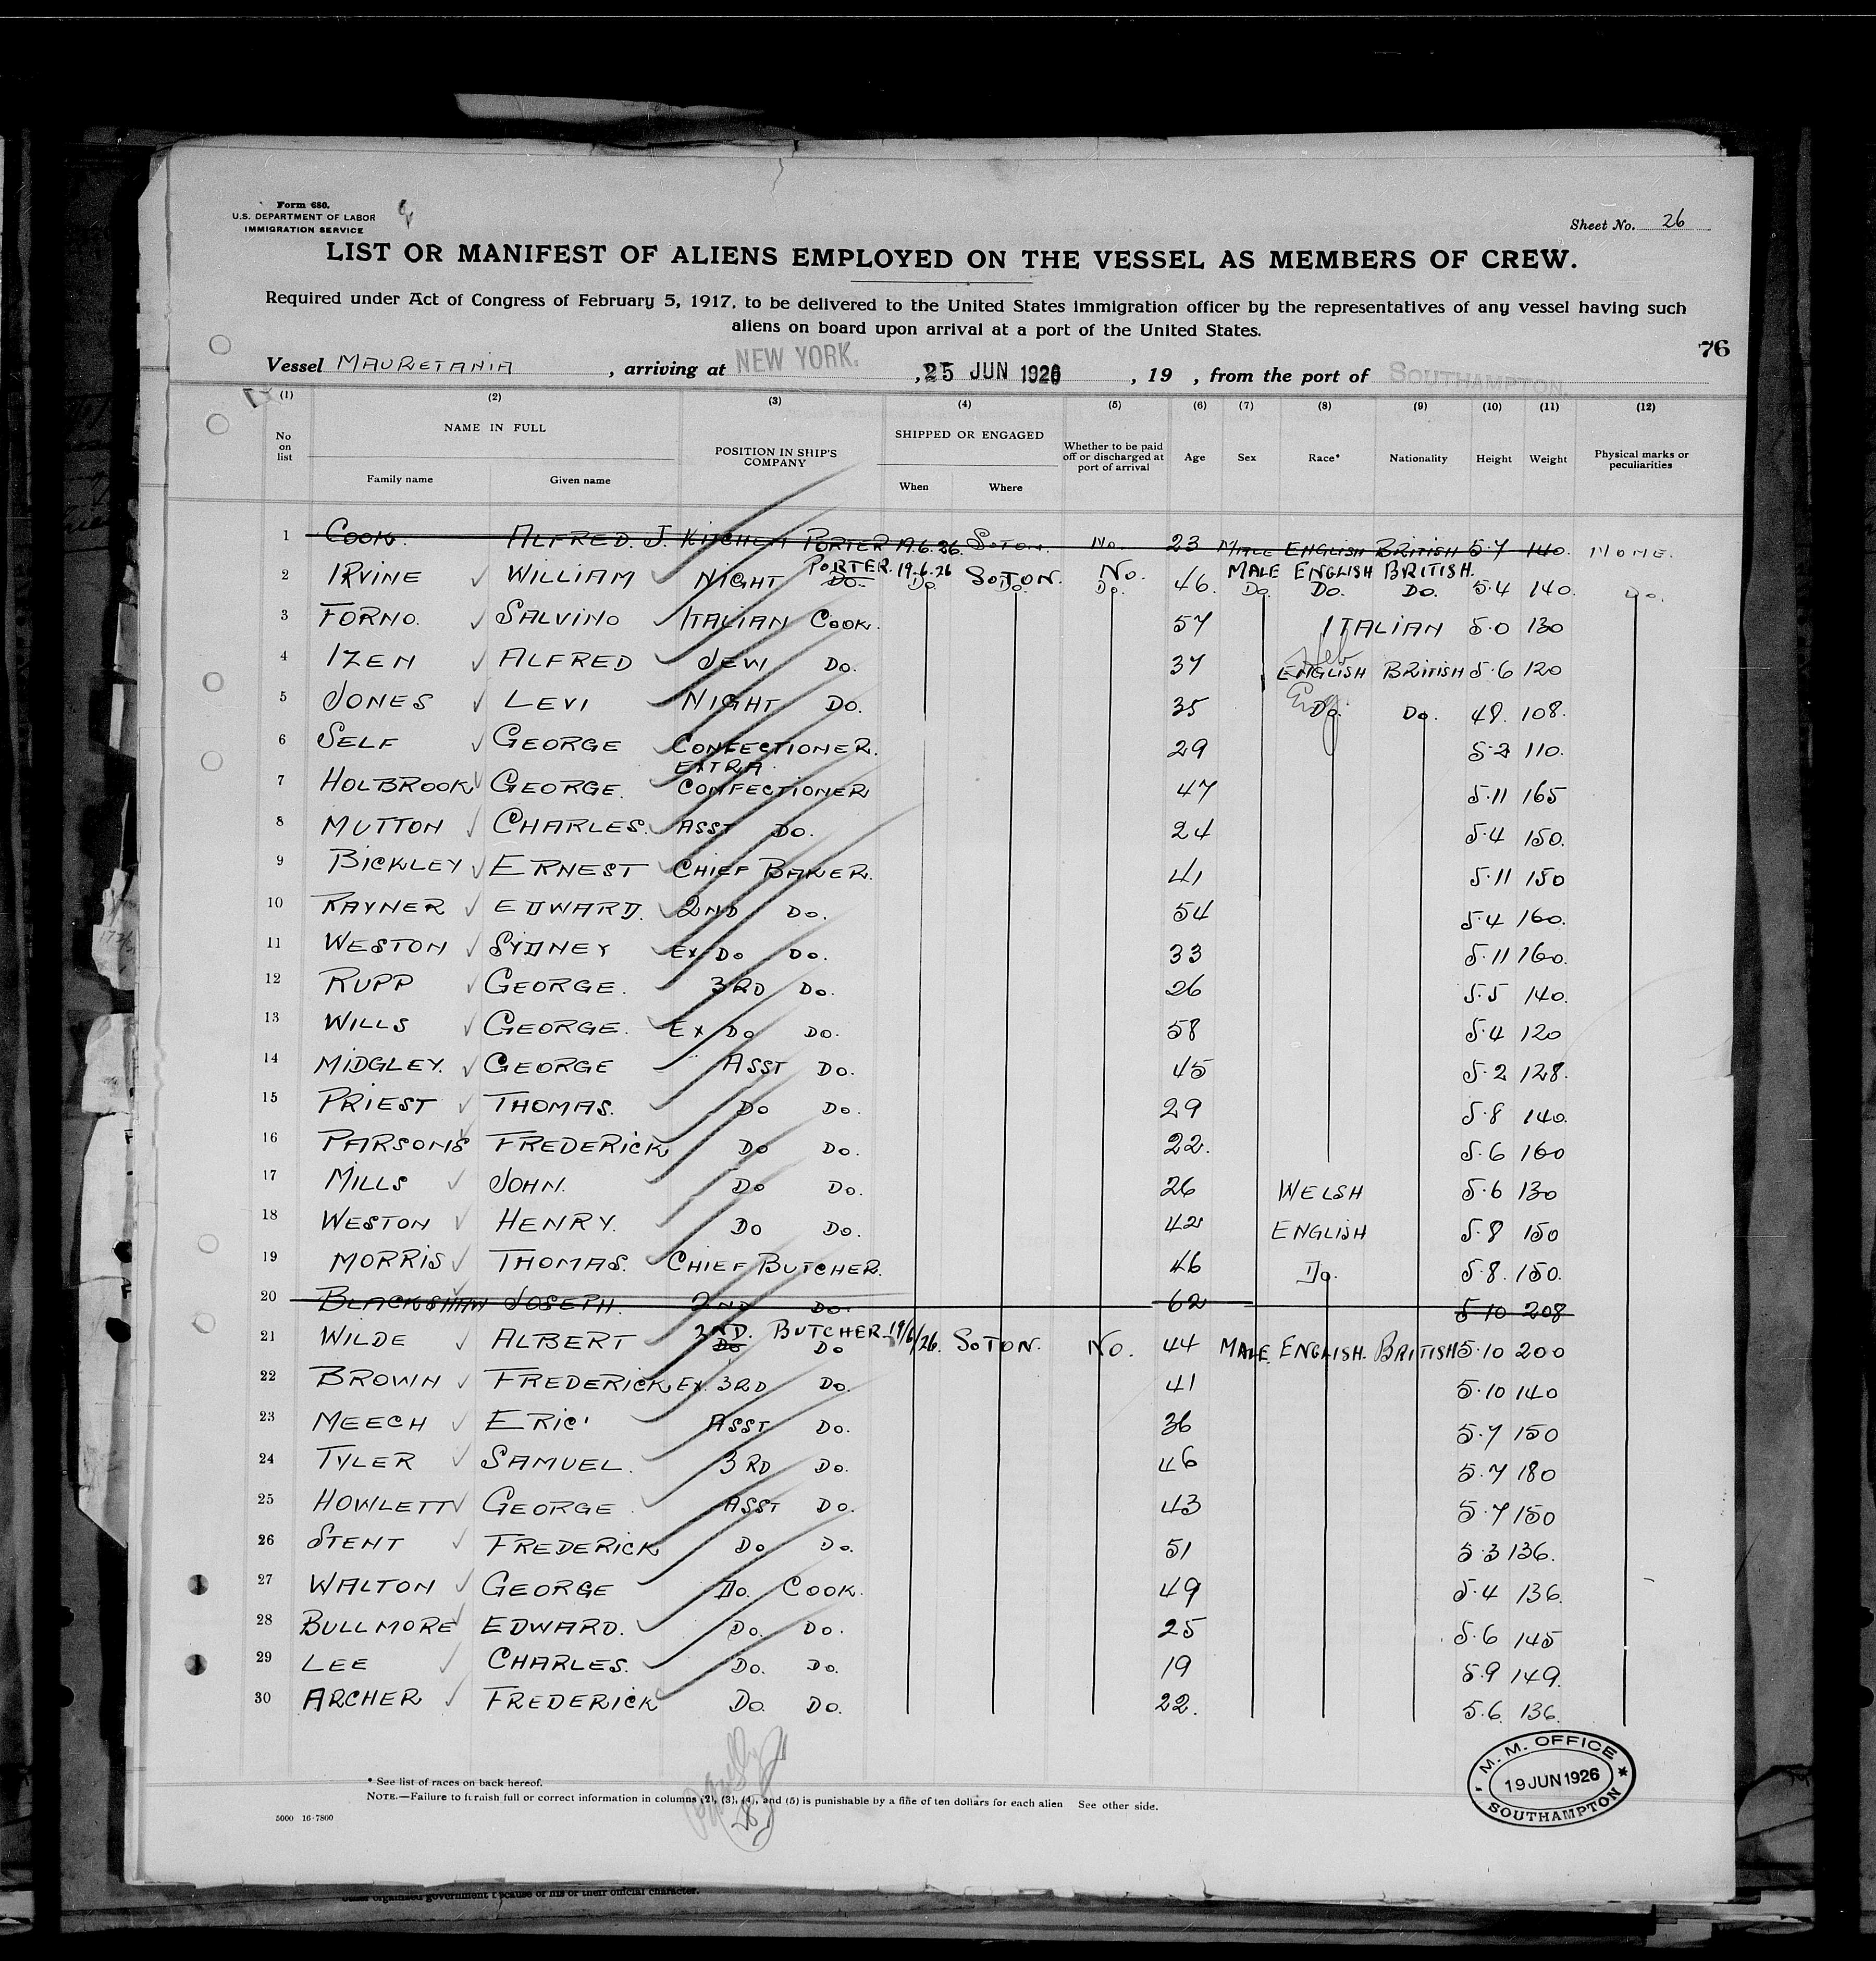 Form 680.
U.S. DEPARTMENT OF LABOR
IMMIGRATION SERVICE
Sheet No. 26
LIST OR MANIFEST OF ALIENS EMPLOYED ON THE VESSEL AS MEMBERS OF CREW.
Required under Act of Congress of February 5, 1917, to be delivered to the United States immigration officer by the representatives of any vessel having such
aliens on board upon arrival at a port of the United States.
76
Vessel MAURETANIA, arriving at NEW YORK., 25 JUN 1926, 19 , from the port of SOUTHAMPTON
(1) (2) (3) (4) (5) (6) (7) (8) (9) (10) (11) (12)
No on list NAME IN FULL Family name Given name POSITION IN SHIP'S COMPANY SHIPPED OR ENGAGED When Where Whether to be paid off or discharged at port of arrival Age Sex Race* Nationality Height Weight Physical marks or peculiarities
1 COOK. ALFRED. J. KITCHEN PORTER 19.6.26. SOTON. NO. 23 MALE ENGLISH BRITISH 5.7 140. NONE.
PORTER. 19.6.26 SOTON. NO. MALE ENGLISH BRITISH.
2 IRVINE WILLIAM NIGHT DO. DO. DO. DO. 46. DO. DO. DO. 5.4 140. DO.
3 FORNO. SALVINO ITALIAN COOK. 57 ITALIAN 5.0 130
4 IZEN ALFRED JEW DO. 37 Heb ENGLISH BRITISH 5.6 120
5 JONES LEVI NIGHT DO. 35 Eng. DO. DO. 49. 108.
6 SELF GEORGE CONFECTIONER. 29 5.2 110.
EXTRA
7 HOLBROOK GEORGE. CONFECTIONER 47 5.11 165
8 MUTTON CHARLES. ASST DO. 24 5.4 150.
9 BICKLEY ERNEST CHIEF BAKER. 41 5.11 150
10 RAYNER EDWARD. 2ND DO. 54 5.4 160.
11 WESTON SYDNEY EX DO DO. 33 5.11 160.
12 RUPP GEORGE. 3RD DO. 26 5.5 140.
13 WILLS GEORGE. EX DO DO. 58 5.4 120
14 MIDGLEY. GEORGE ASST DO. 45 5.2 128.
15 PRIEST THOMAS. DO DO. 29 5.8 140.
16 PARSONS FREDERICK DO DO. 22. 5.6 160
17 MILLS JOHN. DO DO. 26 WELSH 5.6 130
18 WESTON HENRY. DO DO. 42 ENGLISH 5.8 150
19 MORRIS THOMAS. CHIEF BUTCHER. 46 DO. 5.8. 150.
20 BLACKSHAW JOSEPH. 2ND DO. 62 5.10 208
2ND. BUTCHER. 19/6/26. SOTON. NO. MALE. ENGLISH. BRITISH
21 WILDE ALBERT DO DO 44 5.10 200
22 BROWN FREDERICK EX. 3RD DO. 41 5.10 140
23 MEECH ERIC' ASST DO. 36 5.7 150
24 TYLER SAMUEL. 3RD DO. 46 5.7 180
25 HOWLETT GEORGE ASST DO. 43 5.7 150
26 STENT FREDERICK DO DO. 51 5.3 136.
27 WALTON GEORGE DO. COOK. 49 5.4 136.
28 BULLMORE EDWARD. DO. DO. 25 5.6 145
29 LEE CHARLES. DO. DO. 19 5.9 149.
30 ARCHER FREDERICK DO. DO. 22. 5.6 136.
M. M. OFFICE
19 JUN 1926
SOUTHAMPTON
28
* See list of races on back hereof.
NOTE.—Failure to furnish full or correct information in columns (2), (3), (4), and (5) is punishable by a fine of ten dollars for each alien See other side.
5000 16-7800
other organized government because of his or their official character.